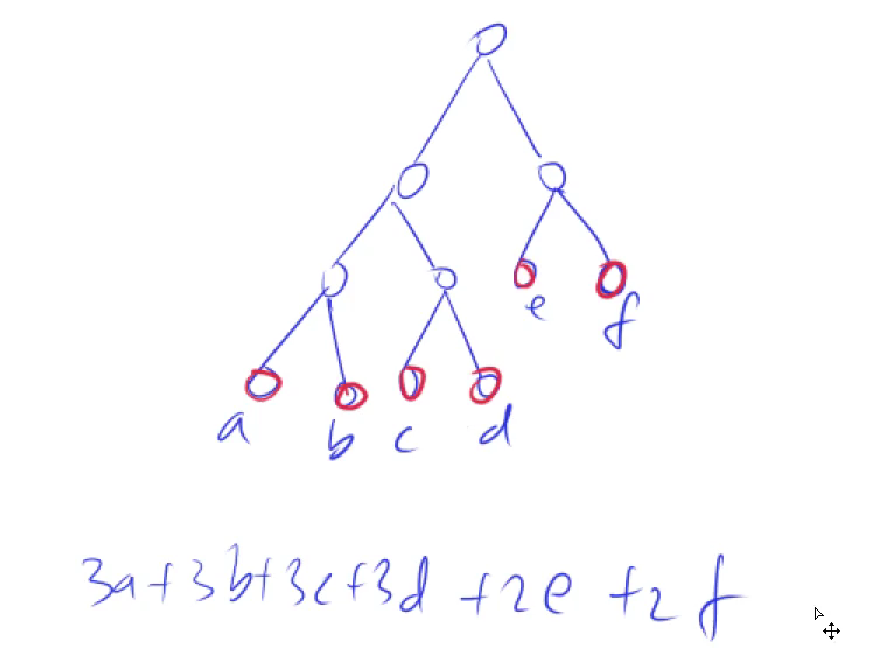 e
f
a b c d
3a+3b+3c+3d +2e +2f